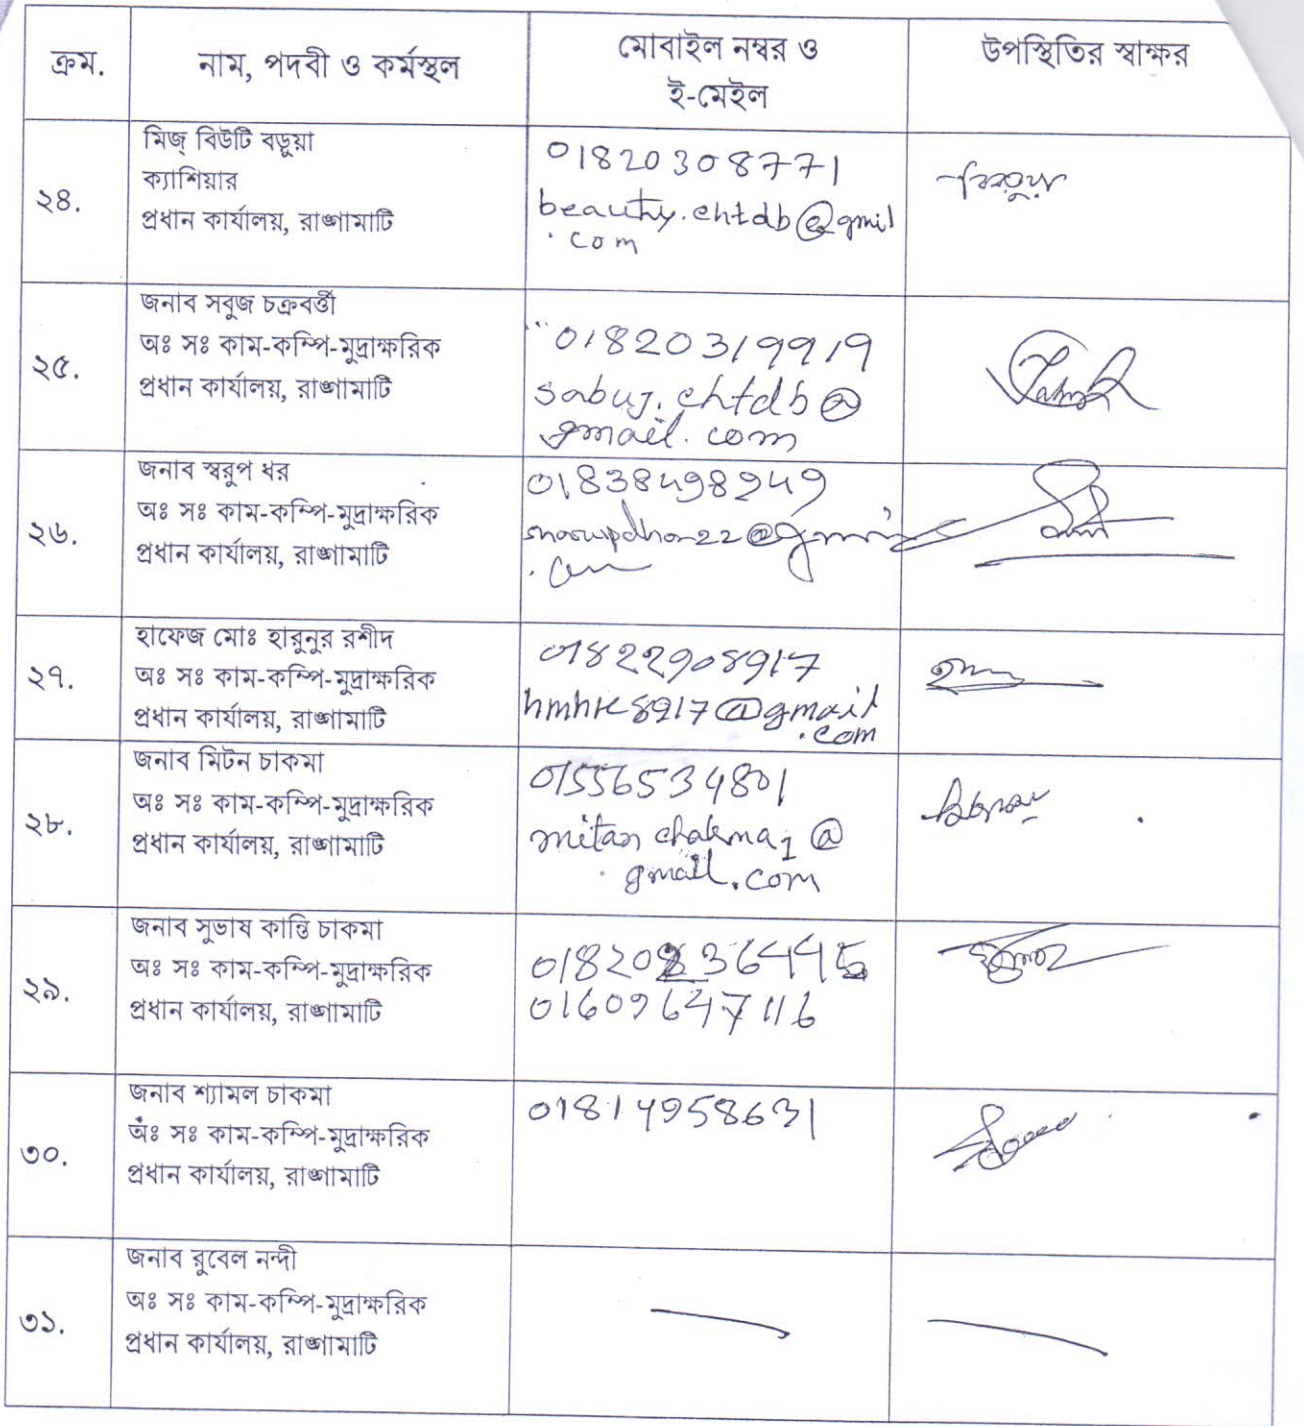 ক্রম.
নাম, পদবী ও কর্মস্থল
মোবাইল নম্বর ও
ই-মেইল
উপস্থিতির স্বাক্ষর
২৪.
মিজ্ বিউটি বড়ুয়া
ক্যাশিয়ার
প্রধান কার্যালয়, রাঙ্গামাটি
01820308771
beauty.chtdb@gmil
.com
২৫.
জনাব সবুজ চক্রবর্ত্তী
অঃ সঃ কাম-কম্পি-মুদ্রাক্ষরিক
প্রধান কার্যালয়, রাঙ্গামাটি
01820319919
sabuj.chtdb@
gmail.com
২৬.
জনাব স্বরুপ ধর
অঃ সঃ কাম-কম্পি-মুদ্রাক্ষরিক
প্রধান কার্যালয়, রাঙ্গামাটি
01838498949
২৭.
হাফেজ মোঃ হারুনুর রশীদ
অঃ সঃ কাম-কম্পি-মুদ্রাক্ষরিক
প্রধান কার্যালয়, রাঙ্গামাটি
01822908917
@gmail
.com
২৮.
জনাব মিটন চাকমা
অঃ সঃ কাম-কম্পি-মুদ্রাক্ষরিক
প্রধান কার্যালয়, রাঙ্গামাটি
01556534801
mitan chakma1@
gmail.com
২৯.
জনাব সুভাষ কান্তি চাকমা
অঃ সঃ কাম-কম্পি-মুদ্রাক্ষরিক
প্রধান কার্যালয়, রাঙ্গামাটি
01609647116
৩০.
জনাব শ্যামল চাকমা
অঃ সঃ কাম-কম্পি-মুদ্রাক্ষরিক
প্রধান কার্যালয়, রাঙ্গামাটি
01814958631
৩১.
জনাব রুবেল নন্দী
অঃ সঃ কাম-কম্পি-মুদ্রাক্ষরিক
প্রধান কার্যালয়, রাঙ্গামাটি